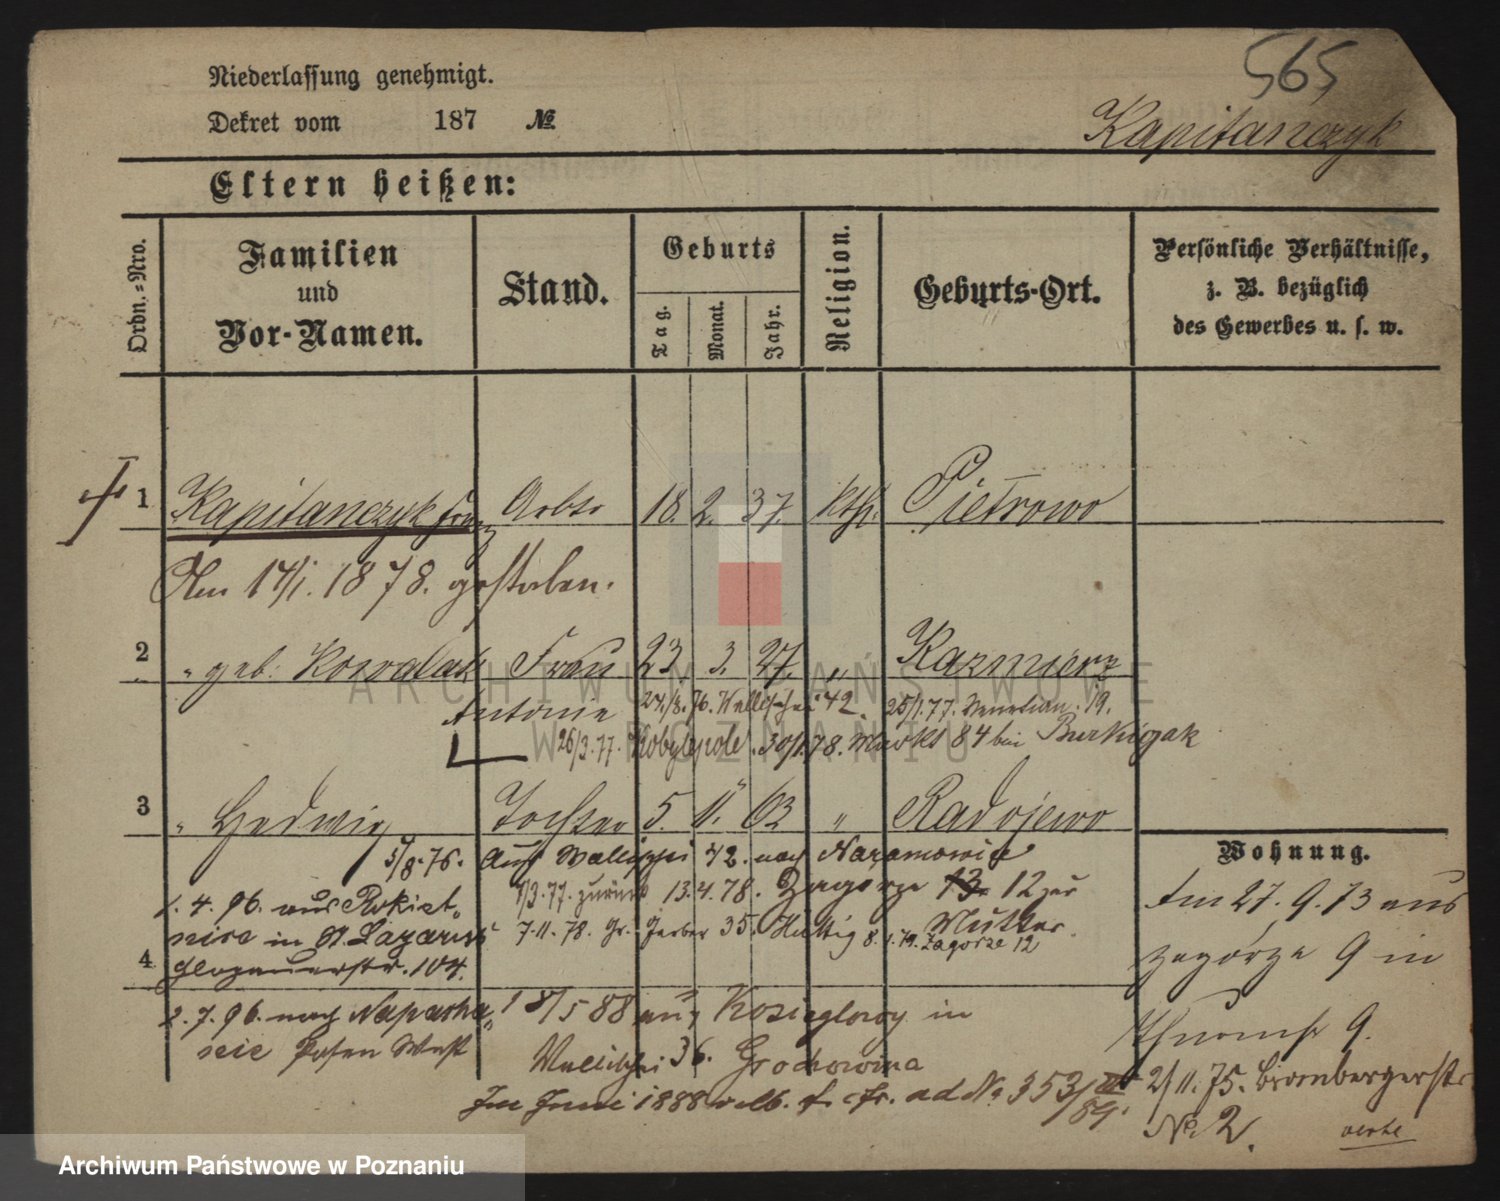 565
Niederlassung genehmigt.
Dekret vom 187 №
Kapitanczyk
Eltern heißen:
Ordn.=Nro.
Familien
und
Vor-Namen.
Stand.
Geburts
Tag.
Monat.
Jahr.
Religion.
Geburts-Ort.
Persönliche Verhältnisse,
z. B. bezüglich
des Gewerbes u. s. w.
1 Kapitanczyk Franz Arbtr 18. 2. 37. kth. Pietrowo
Am 17/1. 1878. gestorben.
2 " geb. Kowalak Frau 23 3. 27. " Kazmierz
Antonie 24./8. 76. Wallischei 42. 25/1. 77. Venetian. 19.
26/3. 77. Kobylepole. 30/1. 78. Markt 84 bei
3 " Hedwig Tochter 5. 11. 63 " Radojewo
5/8. 76. Aus Wallischei 42. nach Naramowice
/3. 77. zurück 13. 4. 78. Zagorze 13. 12 zur
Mutter.
7. 11. 78. Gr. Gerber 35. 8. 1. 79. Zagorze 12
1. 4. 96. aus Rokiet-
nice in St. Lazarus
4 Glogauerstr. 104.
2. 7. 96. nach Napacha-
nie Posen West
18/5 88 aus Kozieglowy in
Wallischei 36. Grochowina
Im Juni 1888 ad № 353/ 89.
Wohnung.
Am 27. 9. 73 aus
Zagórze 9 in
Thurmstr 9.
2/11. 75. Brombergerstr
№ 2.
verte
ARCHIWUM PAŃSTWOWE
W POZNANIU
Archiwum Państwowe w Poznaniu